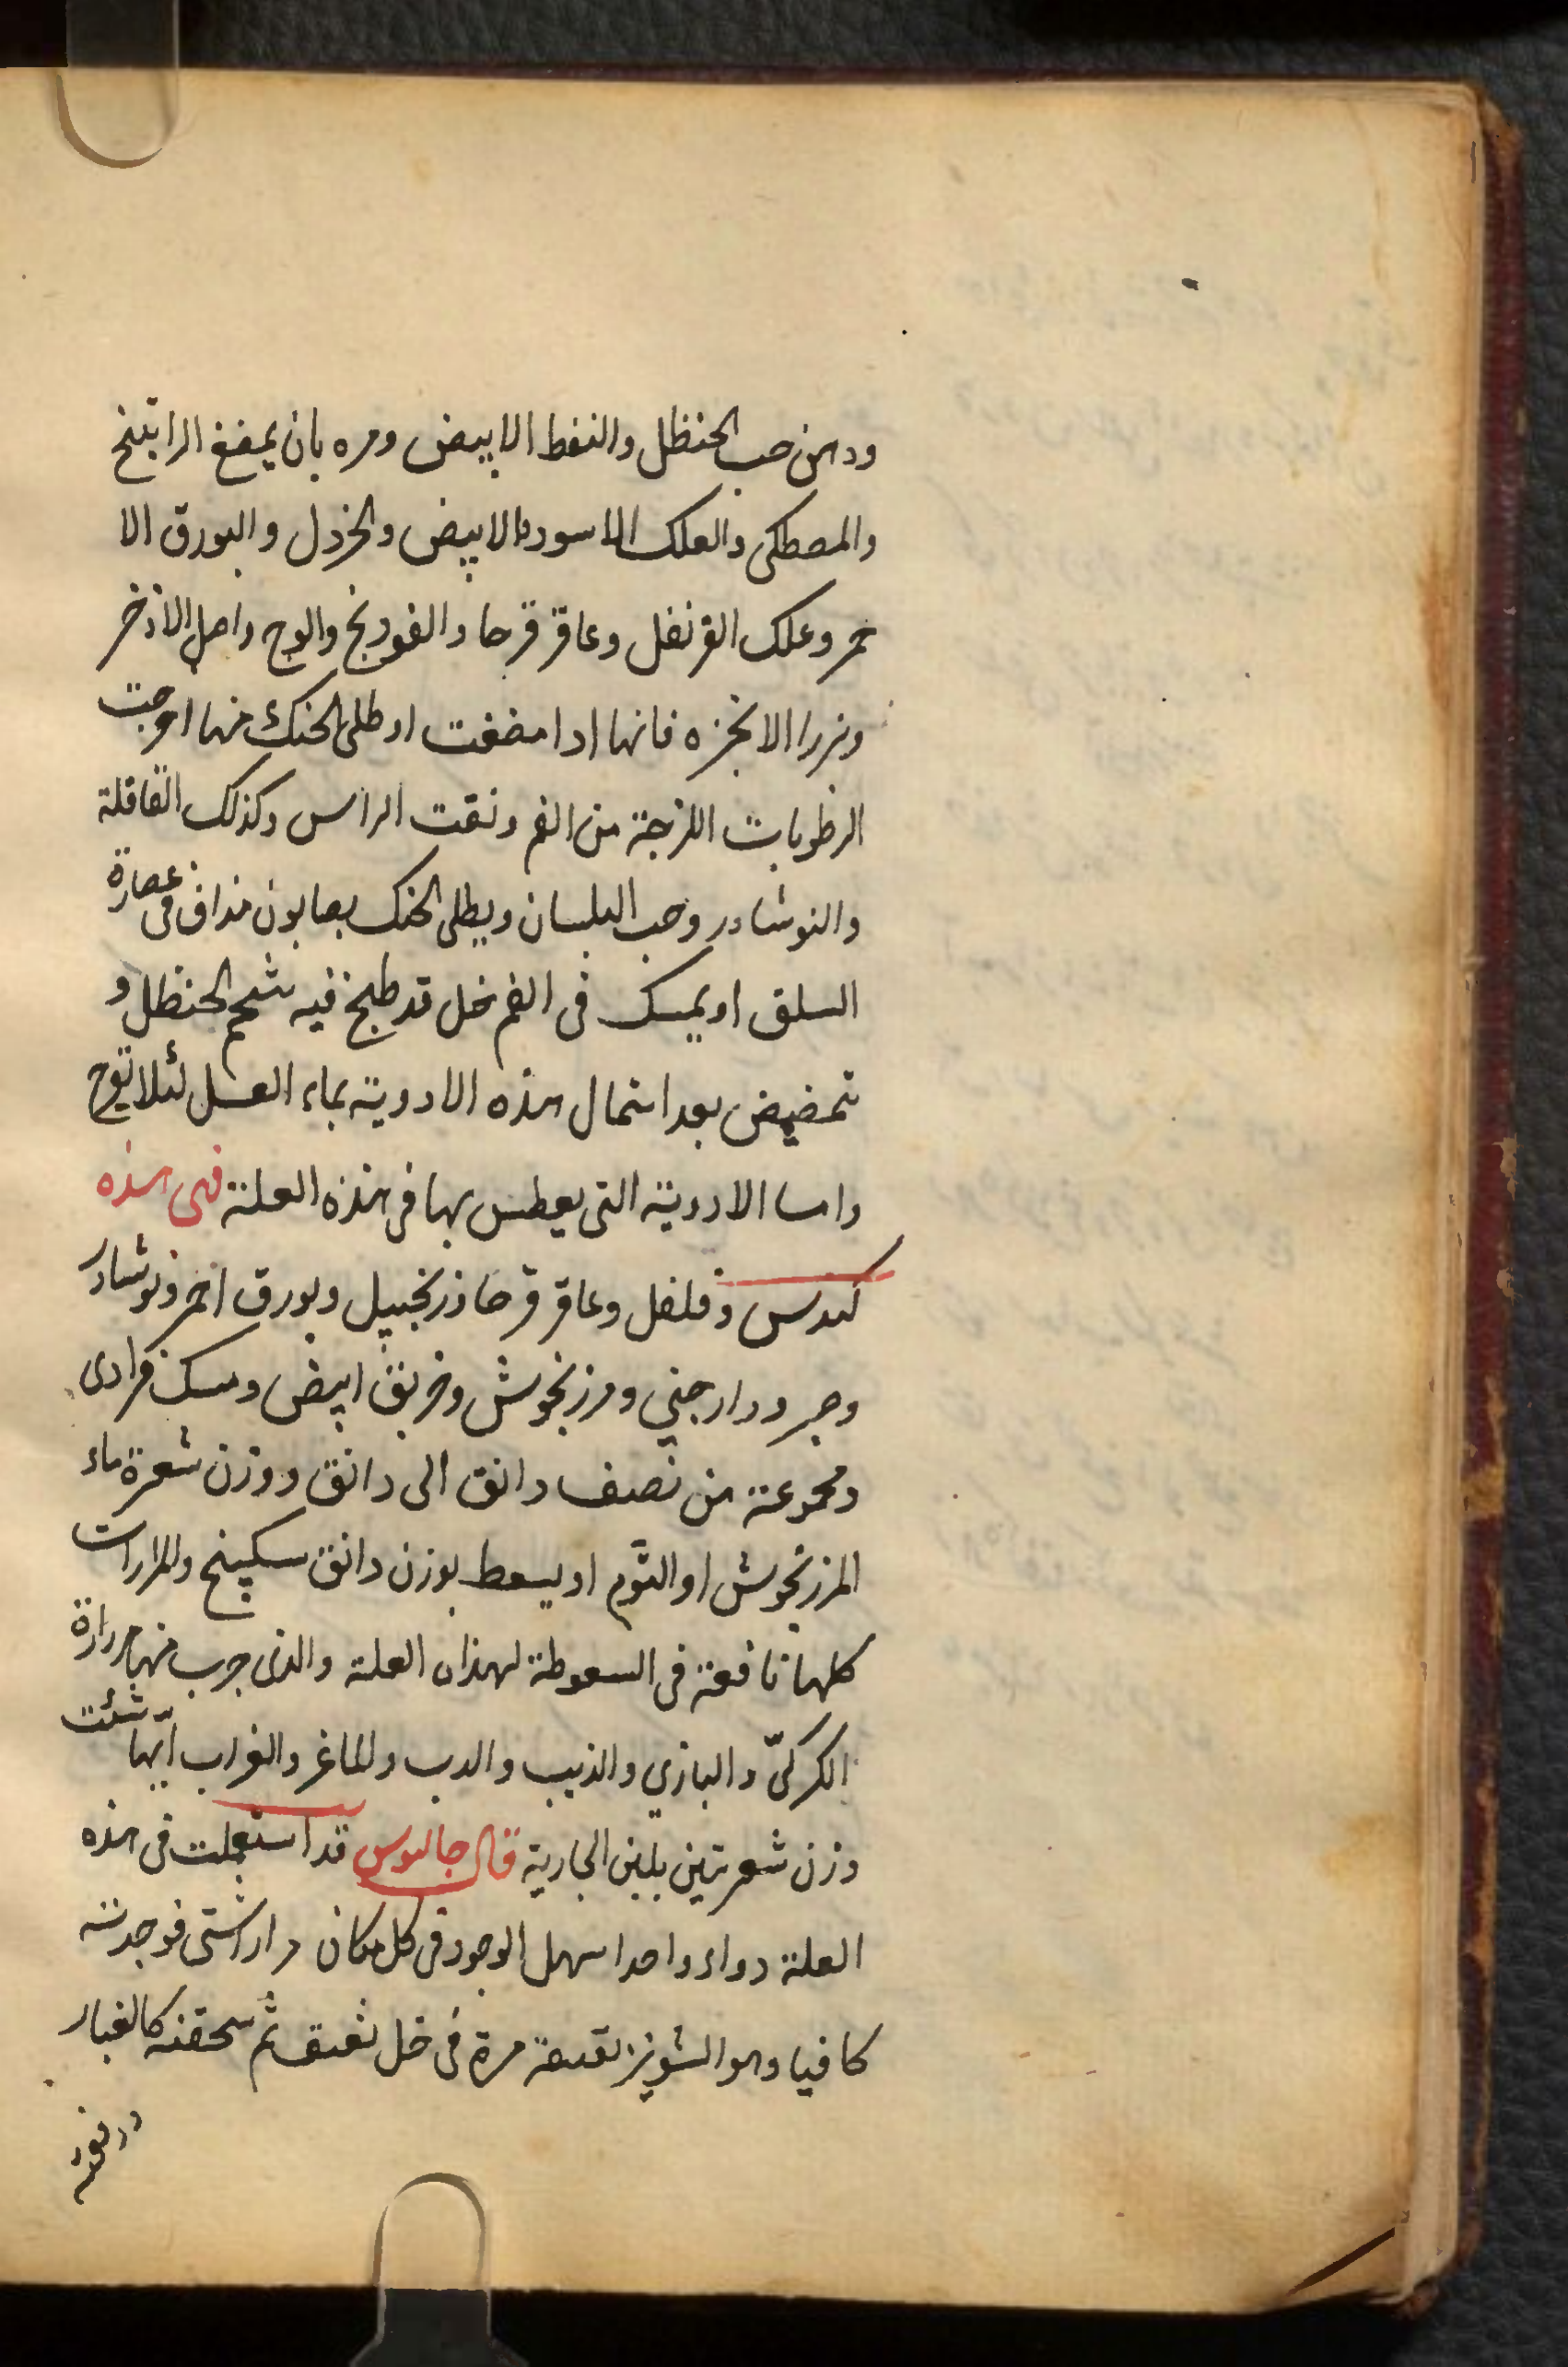 ودهن حب الحنظل والنفط الابيض ومره بان يمضغ الراتينخ
والمصطكى والعلك الاسود والابيض والخردل والبورق الا
حمر وعلك القرنفل وعاقر قرحا والفودنج والوج واصل الاذخر
وبزرا الانجزه فانها ادا مضغت او طلى الحنك منها اخرجت
الرطوبات اللزجة من الفم ونقت الراس وكذلك القاقلة
والنوشادر وحب البلسان ويطلى الحنك بصابون مذاف فى عصارة
السلق او يمسك فى الفم خل قد طبخ فيه شحم الحنظل و
تمضيض بعد اشمال هذه الادوية بماء العسل لئلا تقرح
واما الادوية التى يعطس بها فى هذه العلة فهى هذه
كندس وفلفل وعاقر قرحا وزنجبيل وبورق احمر ونوشادر
وصبر ودارجني ومرزنجوش وخربق ابيض ومسك فرادى
ومجموعة من نصف دانق الى دانق ووزن شعرة ماء
المرزنجوش او الثوم او يسعط بوزن دانق سكبينج والمرارات
كلها نافعة فى السعوطة لهذه العلة والذى جرب منها مرارة
الكركىّ والبازي والذيب والدب والماغر والغراب ايّها شئت
وزن شعرتين بلبن الجارية قال جالنوس قد استعملت فى هذه
العلة دواء واحدا سهل الوجود فى كل مكان مرارا شتى فوجدته
كافيا وهو الشونيز نقيعة مرة فى خل ثقيف ثم سحقته كالغبار